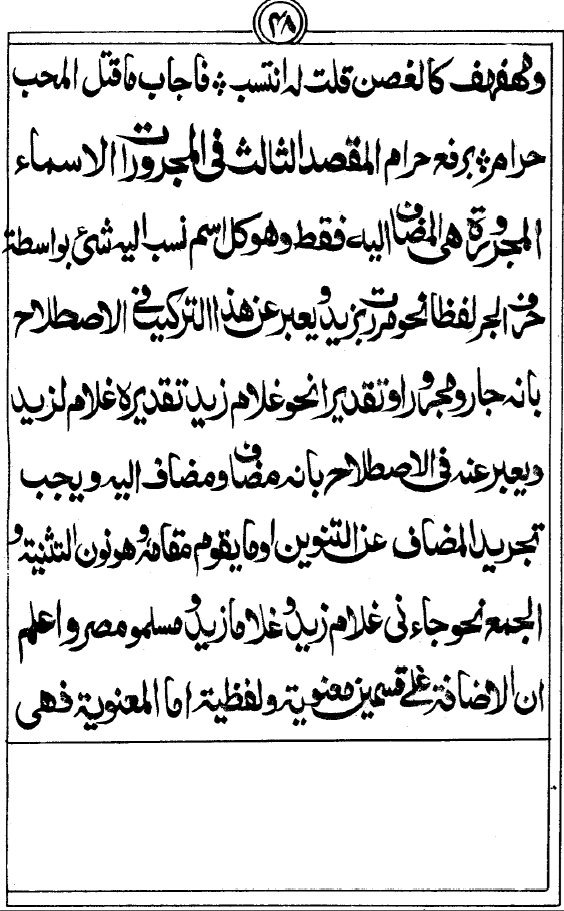 ٤٨
ومهفهف كالغصن قلت له انتسب ؞ فاجاب ما قتل المحب
حرام ؞ برفع حرام المقصد الثالث فى المجرورات الاسماء
المجرورة هى المضاف اليه فقط وهو كل اسم نسب اليه شئ بواسطة
حرف الجر لفظا نحو مررت بزيد ويعبر عن هذا التركيب فى الاصطلاح
بانه جار ومجرور او تقديرا نحو غلام زيد تقديره غلام لزيد
ويعبر عنه فى الاصطلاح بانه مضاف ومضاف اليه ويجب
تجريد المضاف عن التنوين او ما يقوم مقامه وهو نون التثنية و
الجمع نحو جاءنى غلام زيد وغلاما زيد ومسلمو مصر واعلم
ان الاضافة على قسمين معنوية ولفظية اما المعنوية فهى